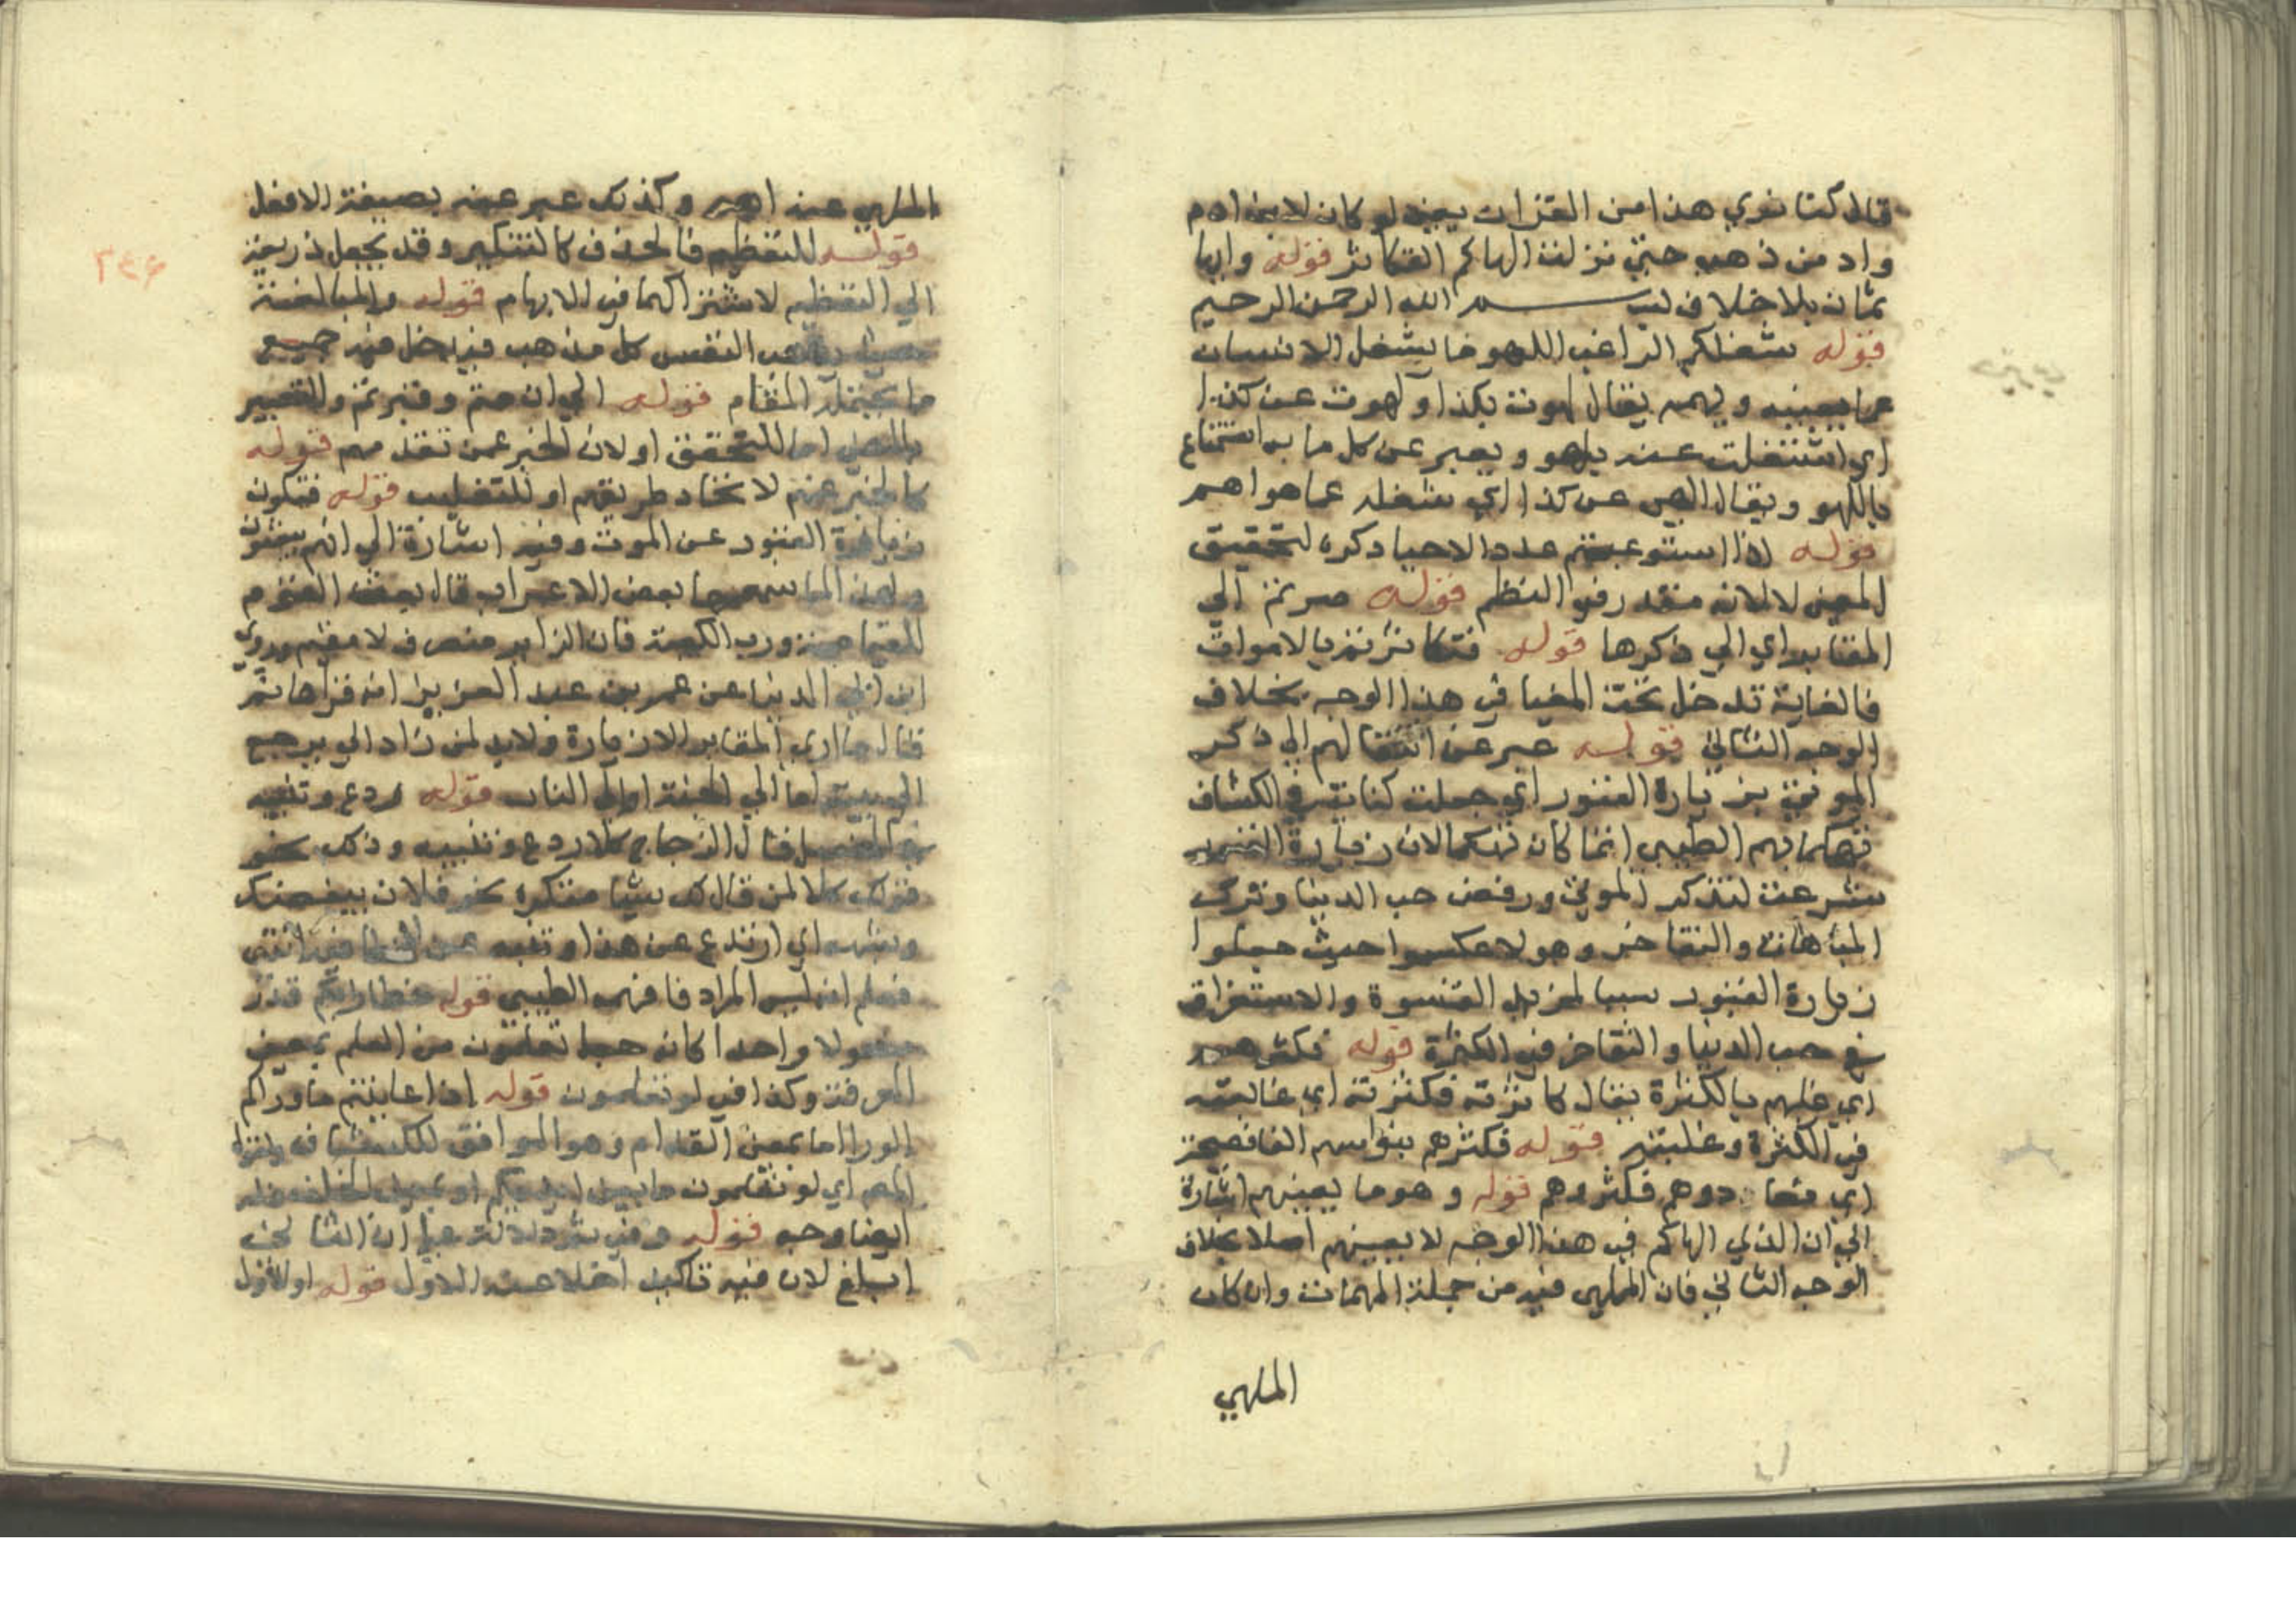 قال كنا نري هذا من القران يعني لو كان لابن ادم
واد من ذهب حتى نزلت الهاكم التكاثر قوله وايها
ثمان بلا خلاف بسم الله الرحمن الرحيم
قوله شغلكم الراغب اللهو ما يشغل الانسان
عما يعنيه ويهمه يقال لهوت بكذا ولهوت عن كذا
اي اشتغلت عنه بلهو ويعبر عن كل ما به استمتاع
باللهو ويقال الهى عن كذا اي شغله عما هو اهم
قوله اذا استوعبتم عدد الاحيا ذكره لتحقيق
المعنى لا لانه مقدر في النظم قوله صرتم الى
المقابر اي الي ذكرها قوله فتكاثرتم بالاموات
فالغاية تدخل تحت المغيا في هذا الوجه بخلاف
الوجه الثاني قوله عبر عن انتقالهم الي ذكر
الموتى بزيارة القبور اي جعلت كناية في الكشاف
تهكما بهم الطيبي انما كان تهكما لان زيارة القبور
شرعت لتذكر الموتى ورفض حب الدنيا وترك
المباهات والتفاخر وهولا عكسوا حيث جعلوا
زيارة القبور سببا لمزيد القسوة والاستغراق
في حب الدنيا والتفاخر في الكثرة قوله فكثرهم
اي غلبهم بالكثرة يقال كاثرته فكثرته اي غالبته
في الكثرة وغلبته قوله فكثرهم بنو اسهم الفا فصيحة
اي فعادوهم فكثروهم قوله وهو ما يعنيهم اشارة
الي ان الذي الهاكم في هذا الوجه لا يعينهم اصلا بخلاف
الوجه الثاني فان الملهى فيه من جملة المهمات وان كان
الملهي
الملهي عنه اهم وكذلك عبر عنه بصيغة الافعل
قوله للتعظيم فالحذف كالتنكير وقد يجعل ذريعة
الي التعظيم لاشتراكهما في الابهام قوله والمبالغة
النفس كل مذهب فيدخل فيه جميع
ما يحتمله المقام قوله الي ان متم وقبرتم والتعبير
بالمضي اما للتحقق او لان الخبر عمن تقدمهم قوله
كالخبر عنهم لاتحاد طريقهم او للتغليب قوله فتكون
زيارة القبور عن الموت وفيه اشارة الي انهم يبعثون
ولهذا لما سمعها بعض الاعراب قال بعث القوم
للقيامة ورب الكعبة فان الزاير منصرف لا مقيم وروي
ابن ابي الدنيا عن عمر بن عبد العزيز انه قراها ثم
قال ما اري المقابر الا زيارة ولابد لمن زاد الي يرجع
الي بيته اما الي الجنة او الي النار قوله ردع وتنبيه
في المفصل قال الزجاج كلا ردع وتنبيه وذلك نحو
قولك كلا لمن قال لك شيا منكره نحو فلان يبغضك
وشبهه اي ارتدع عن هذا وتنبه عن انتهى
فعلم انه ليس المراد فافهم الطيبي قوله خطا رايكم قدر
مفعولا واحدا كانه جعل تعلمون من العلم بمعنى
المعرفة وكذا في لو تعلمون قوله اذا عاينتم ما وراكم
الورا اما بمعنى القدام وهو الموافق للكشاف
اي لو تعلمون ما بين ايديكم او بمعنى الخلف فله
ايضا وجه قوله وفي ثم دلالة على ان الثاني
ابلغ لان فيه تاكيدا خلا عنه الاول قوله او الاول
٢٤٦